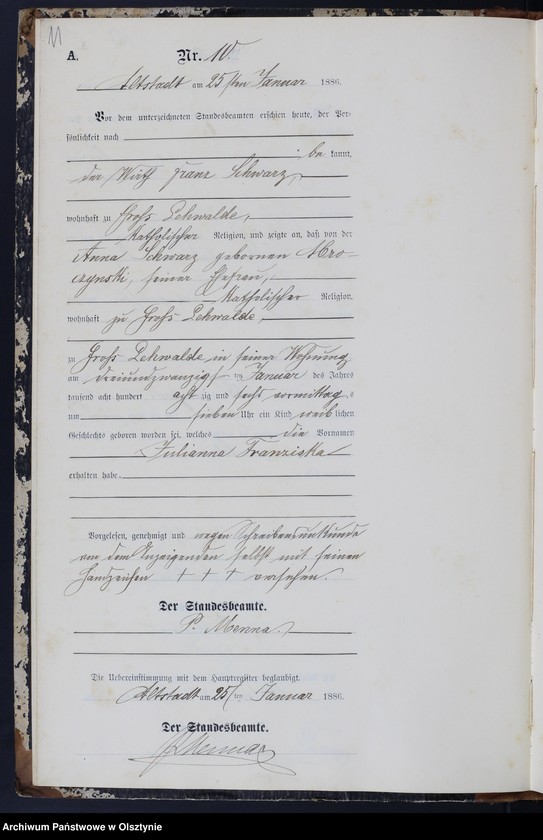 11
A.
Nr. 10.
Altstadt am 25 ten Januar 1886.
Vor dem unterzeichneten Standesbeamten erschien heute, der Per-
sönlichkeit nach
be kannt,
der Wirth Franz Schwarz,
wohnhaft zu Groß Lehwalde,
Katholischer Religion, und zeigte an, daß von der
Anna Schwarz gebornen Mro-
czynski, seiner Ehefrau,
Katholischer Religion,
wohnhaft zu Groß Lehwalde,
zu Groß Lehwalde in seiner Wohnung
am dreiundzwanzigsten Januar des Jahres
tausend acht hundert acht zig und sechs vormittags
um sieben Uhr ein Kind weib lichen
Geschlechts geboren worden sei, welches die Vornamen
Julianna Franziska
erhalten habe.
Vorgelesen, genehmigt und wegen Schreibensunkunde
von dem Anzeigenden selbst mit seinen
Handzeichen + + + versehen.
Der Standesbeamte.
P. Menna.
Die Uebereinstimmung mit dem Hauptregister beglaubigt.
Altstadt am 25 ten Januar 1886.
Der Standesbeamte.
Archiwum Państwowe w Olsztynie